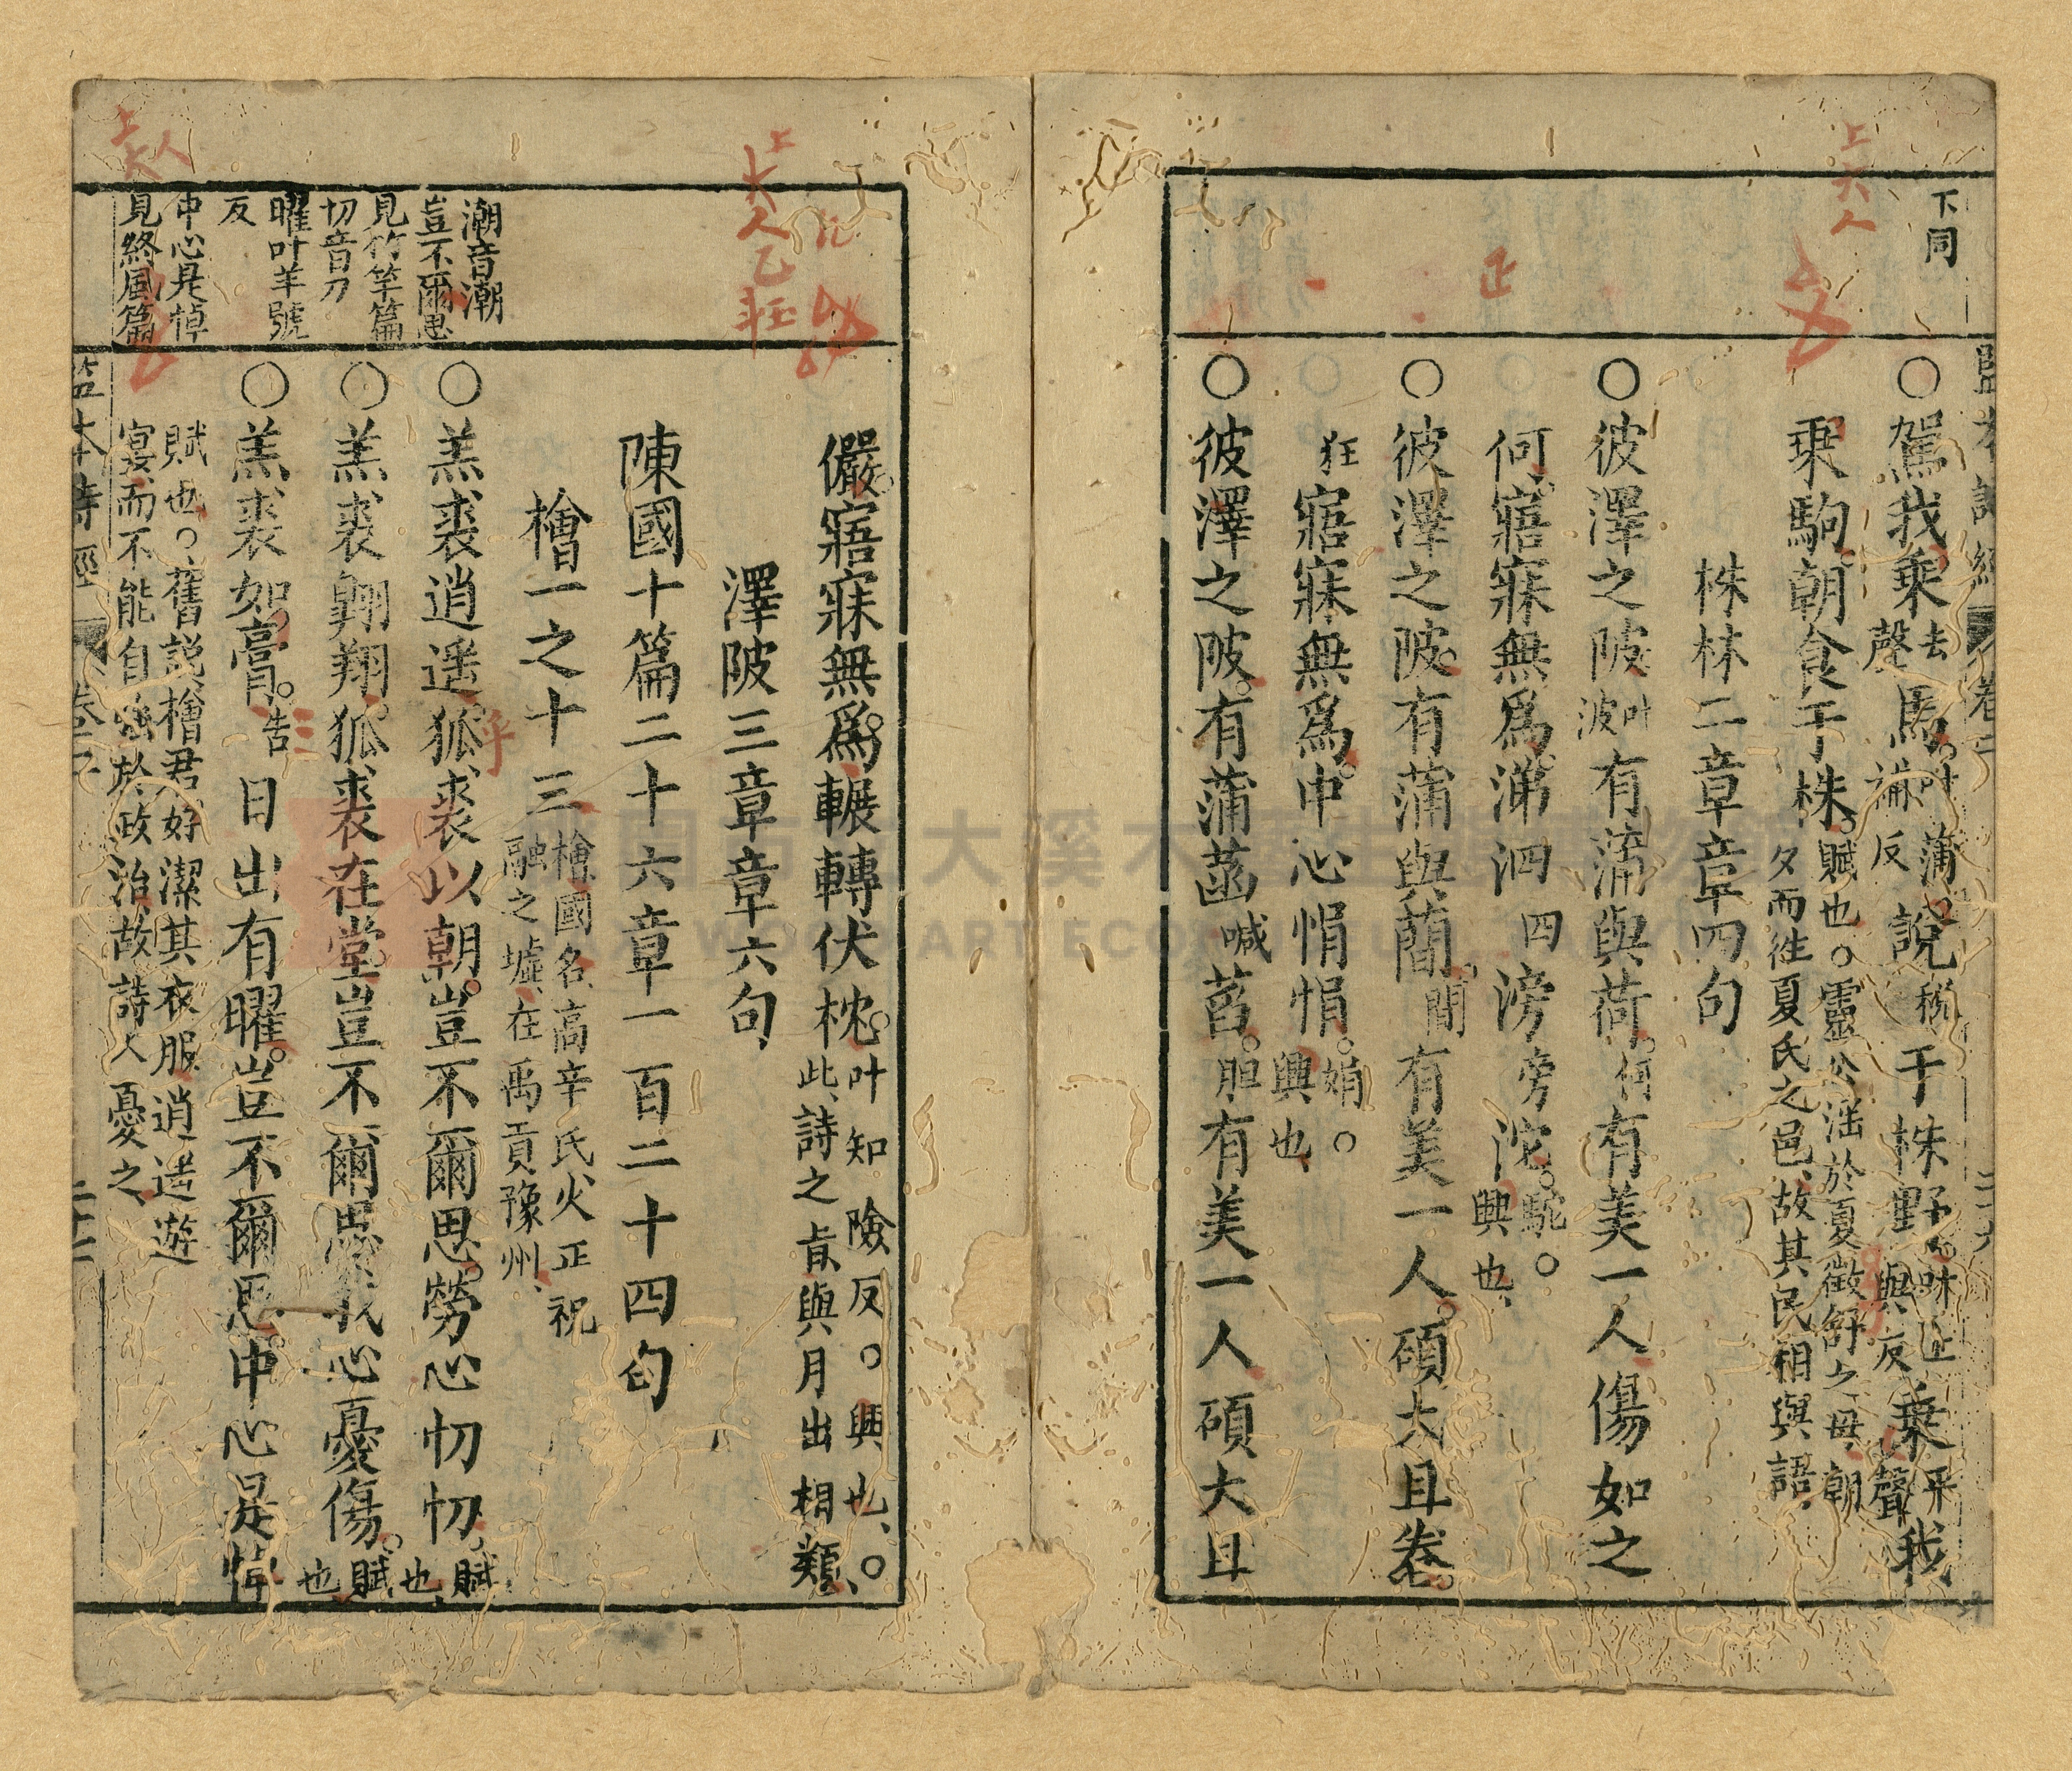 下同
監本詩經 卷三
○駕我乗去聲馬叶蒲補反說稅于株野叶上與反乗平聲我
乗駒朝食于株賦也○靈公淫於夏徵舒之母朝
夕而徃夏氏之邑故其民相與語
株林二章章四句
○彼澤之陂叶波有蒲與荷何有美一人傷如之
何寤寐無爲涕泗四滂旁沱駝○
興也
○彼澤之陂有蒲與蕑間有美一人碩大且卷
狂寤寐無爲中心悁悁娟○
興也
○彼澤之陂有蒲菡喊萏胆有美一人碩大且
儼寤寐無爲輾轉伏枕叶知險反○興也○
此詩之㫖與月出相類
澤陂三章章六句
陳國十篇二十六章一百二十四句
檜一之十三檜國名高辛氏火正祝
融之墟在禹貢豫州
○羔裘逍遥狐裘以朝豈不爾思勞心忉忉賦
也
○羔裘翺翔狐裘在堂豈不爾思我心憂傷賦
也
○羔裘如膏告日出有曜豈不爾思中心是悼
賦也○舊説檜君好潔其衣服逍遥遊
宴而不能自强於政治故詩人憂之
潮音潮
豈不爾思
見竹竿篇
切音刀
曜叶羊號
反
中心是悼
見終風篇
監本詩經 卷三